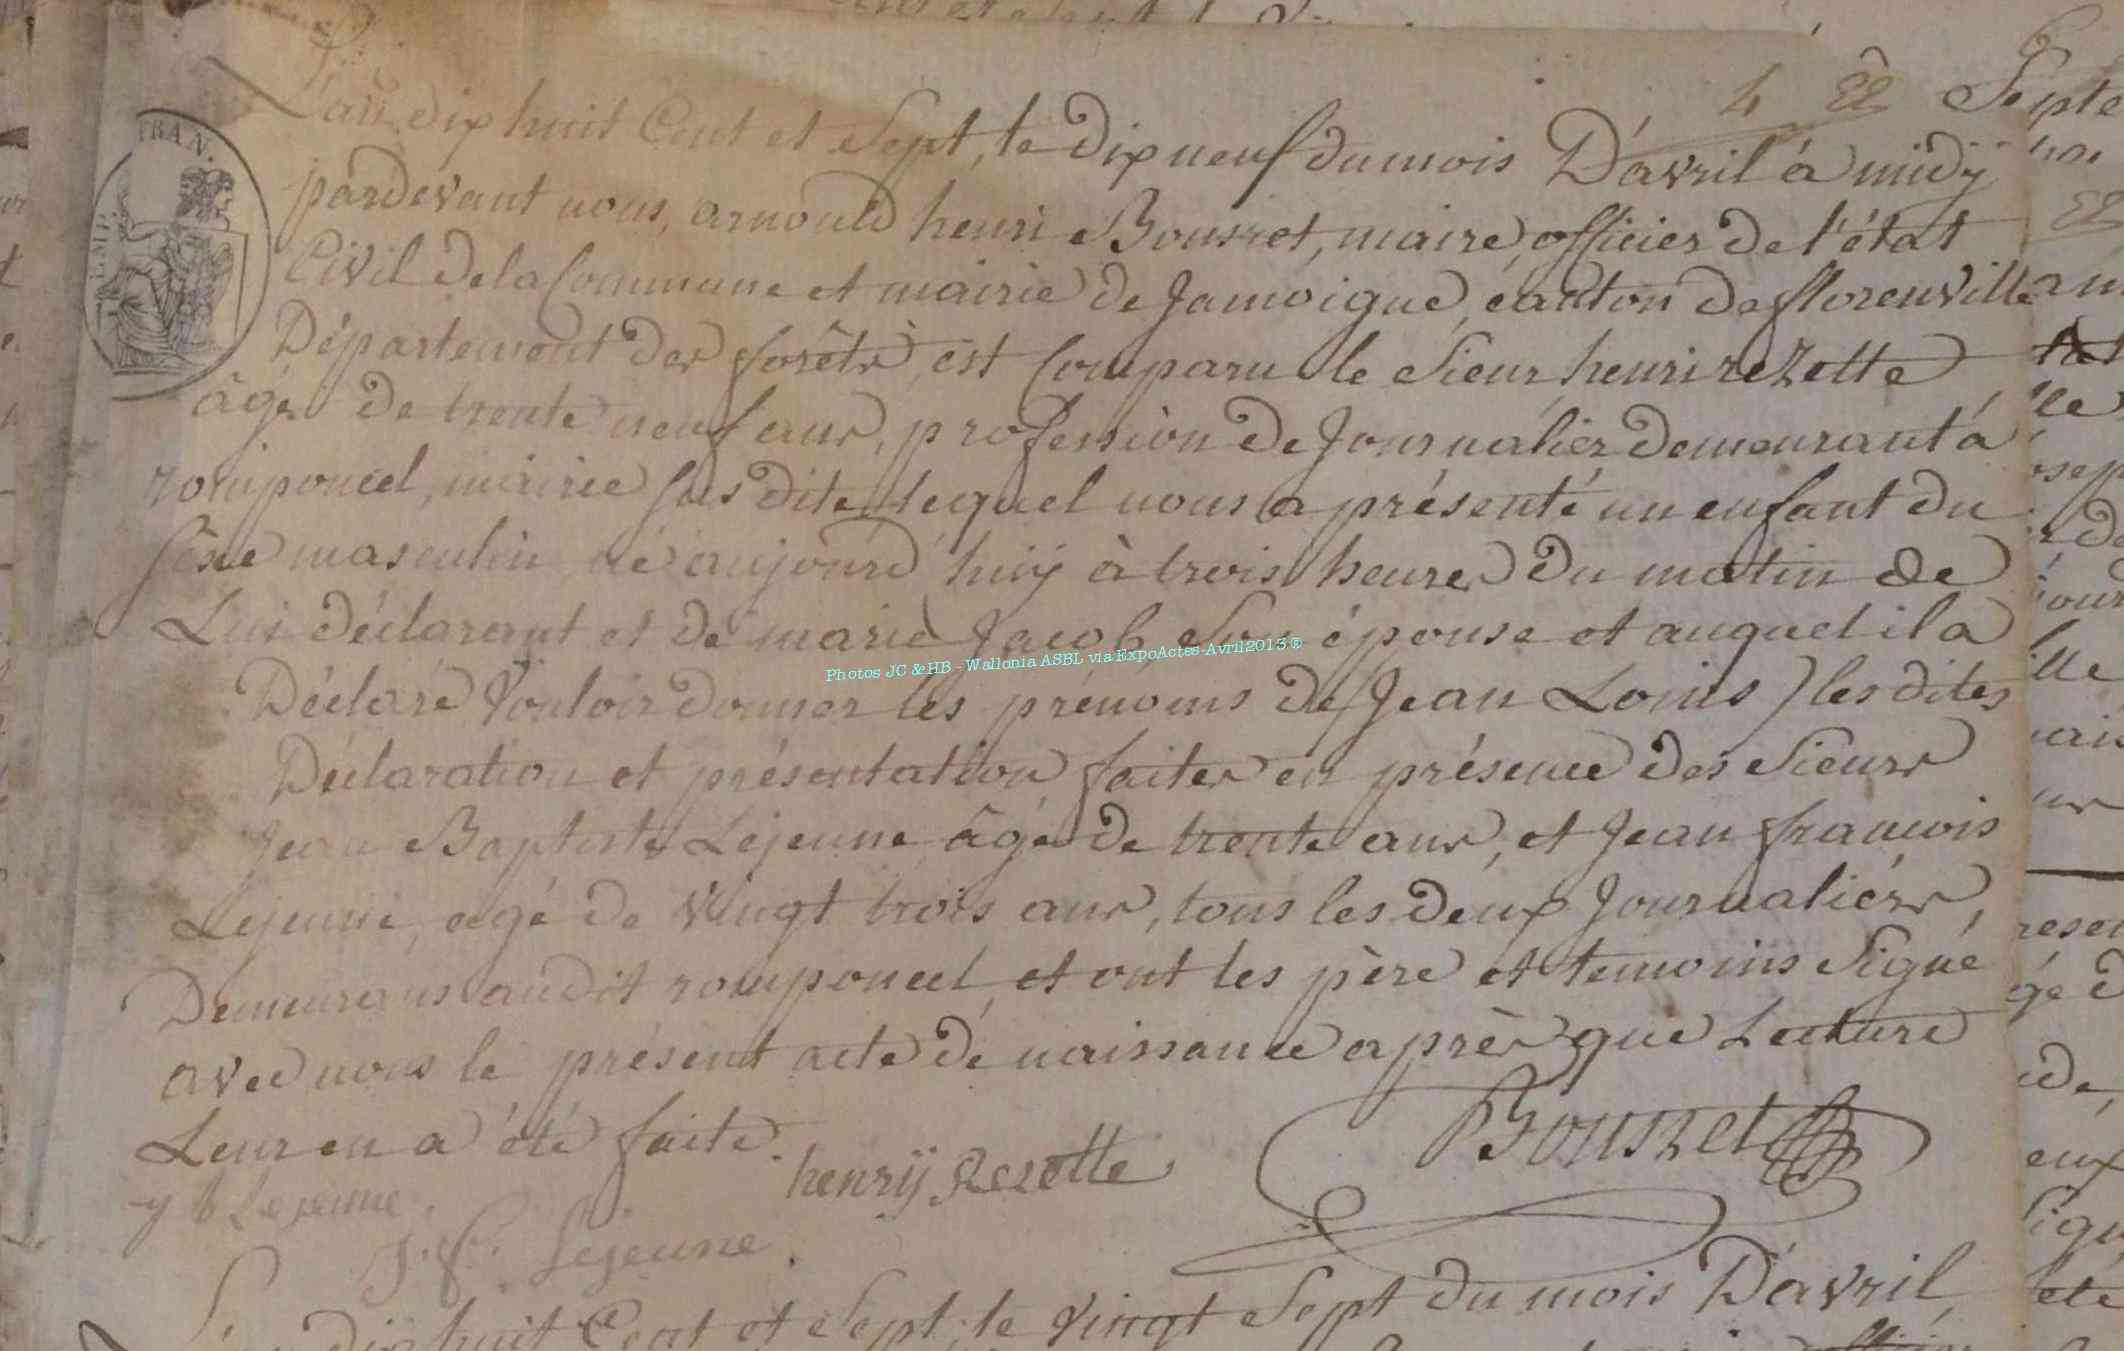 4 22
L'an dix huit Cent et Sept, le Dix neuf du mois D'avril à midÿ
pardevant nous, arnould henri Bousret, maire, officier de l'état
Civil de la Commune et mairie de Jamoigne, canton de florenville
Département des forêts, est Comparu le Sieur henri rezette
âgé de trente neuf ans, profession de Journalier demeurant à
romponcel, mairie susdite, lequel nous a présenté un enfant du
sêxe masculin né aujourd'huÿ à trois heures du matin de
Lui déclarant et de marie Jacob Son épouse et auquel il a
Déclaré Vouloir donner les prénoms de Jean Louis) les dites
Déclaration et présentation faites en présence des Sieurs
Jean Baptiste Lejeune âgé de trente ans, et Jean francois
Lejeune, agé de Vingt trois ans, tous les deux Journaliérs,
Demeurans audit romponcel, et ont les père et temoins Signé
avec nous le présent acte de naissance après que Lecture
Leur en a été faite.
Bousret
henrÿ Rezette
b Lejeune.
J. f. Lejeune.
L'an dix huit Cent et Sept, le Vingt Sept du mois D'avril,
FRAN.
EMP.
Photos JC & HB - Wallonia ASBL via ExpoActes-Avril2013®